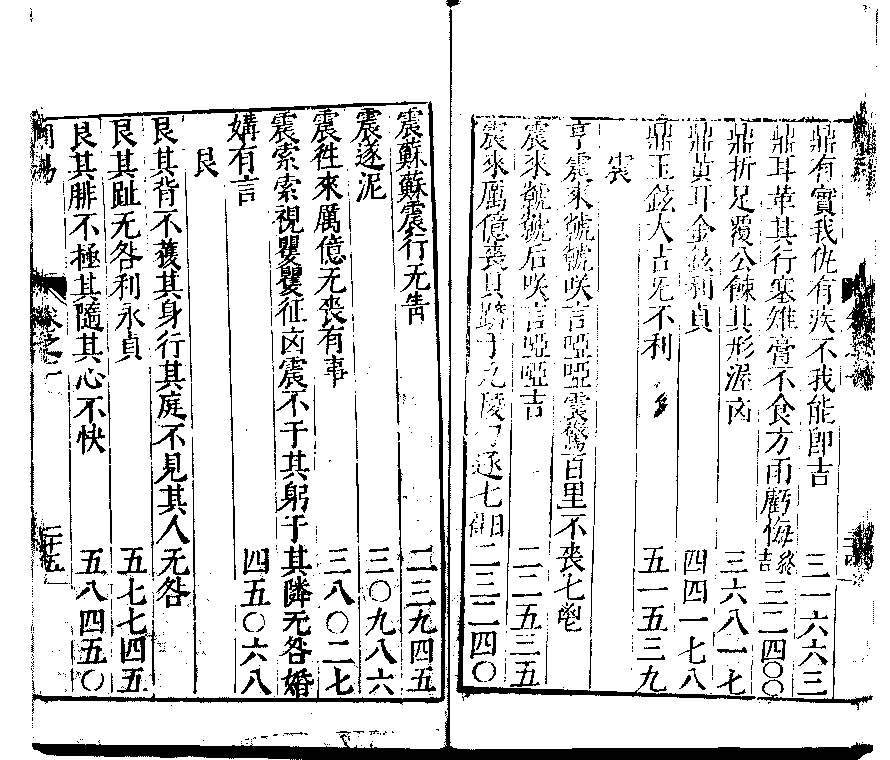 鼎有實我仇有疾不我能即吉 三一六六三
鼎耳革其行塞雉膏不食方雨虧悔終吉 三二四〇〇
鼎折足覆公餗其形渥凶 三六八一七
鼎黃耳金鉉利貞 四四一七八
鼎玉鉉大吉无不利 五一五三九
震
亨震來虩虩咲言啞啞震驚百里不喪七鬯
震來虩虩后咲言啞啞吉 二二五三五
震來厲億喪貝躋于九陵勿逐七日 二三二四〇
震蘇蘇震行无眚 二三九四五
震遂泥 三〇九八六
震徃來厲億无喪有事 三八〇二七
震索索視矍矍征凶震不于其躬于其隣无咎婚
媾有言 四五〇六八
艮
艮其背不𫉬其身行其庭不見其人无咎
艮其趾无咎利永貞 五七七四五
艮其腓不極其隨其心不快 五八四五〇
周易 卷之一 二十五